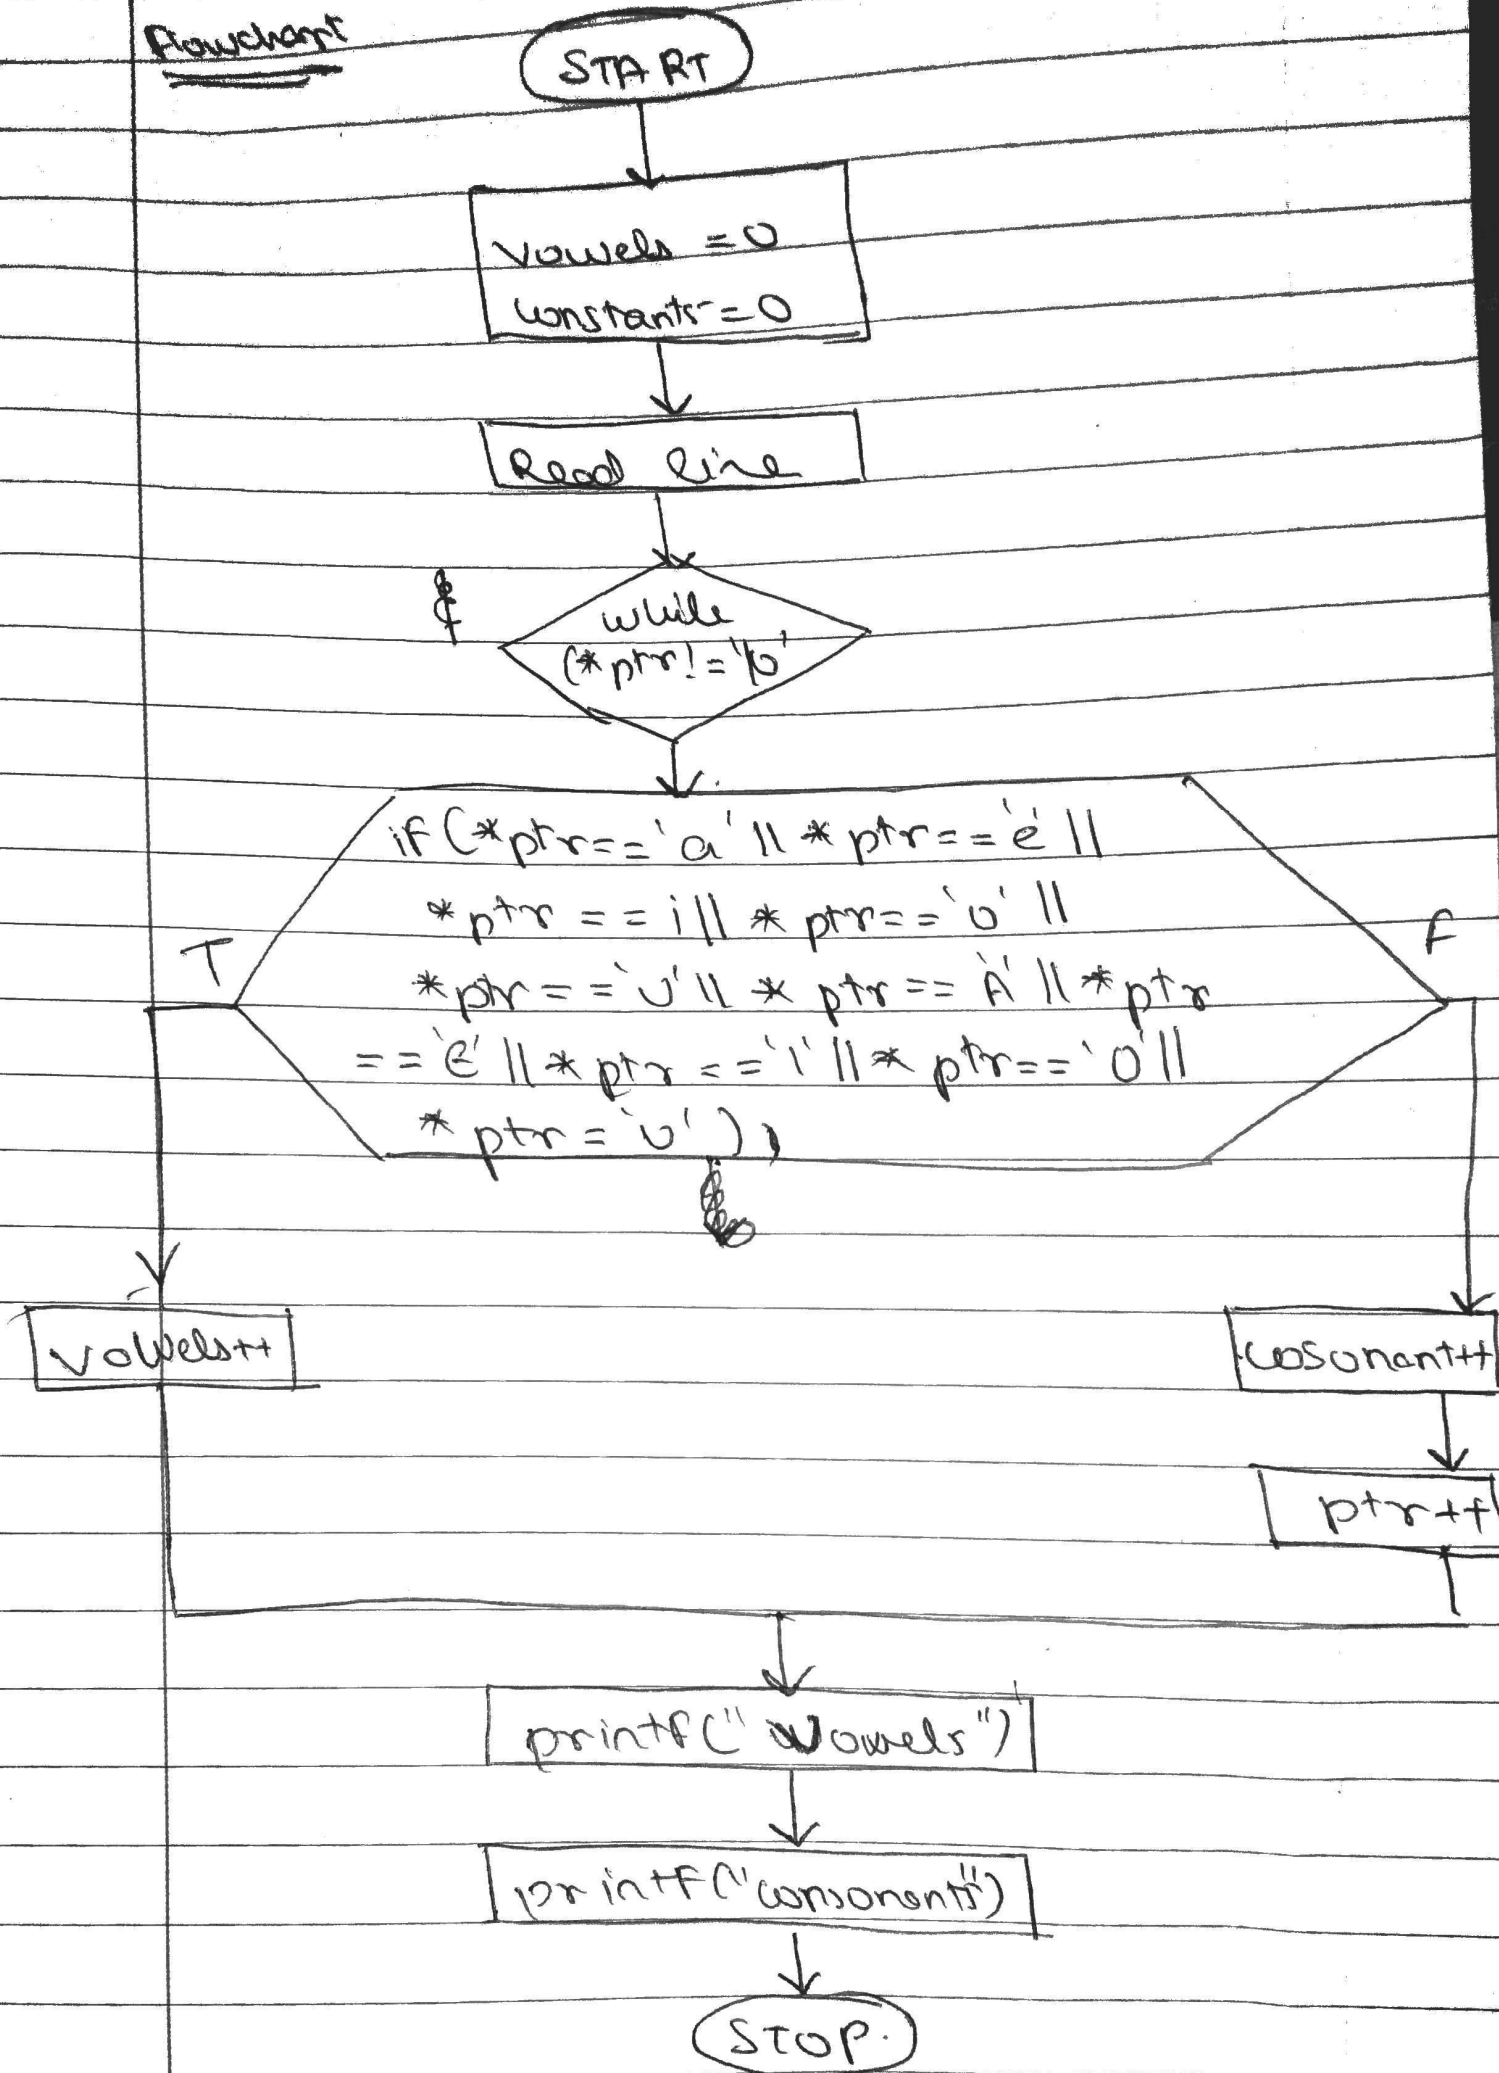 Flowchart
START
vowels = 0
constants = 0
Read line
while
(*ptr! = '\0'
if (*ptr== 'a' || * ptr== 'e' ||
*ptr == i || * ptr== 'o' ||
T
F
*ptr == 'u' || * ptr== 'A' || *ptr
== 'E' || * ptr == 'I' || * ptr== 'O' ||
* ptr = 'U' ) )
vowels++
cosonant++
ptr++
printf(" Vowels")
printf("consonents")
STOP.